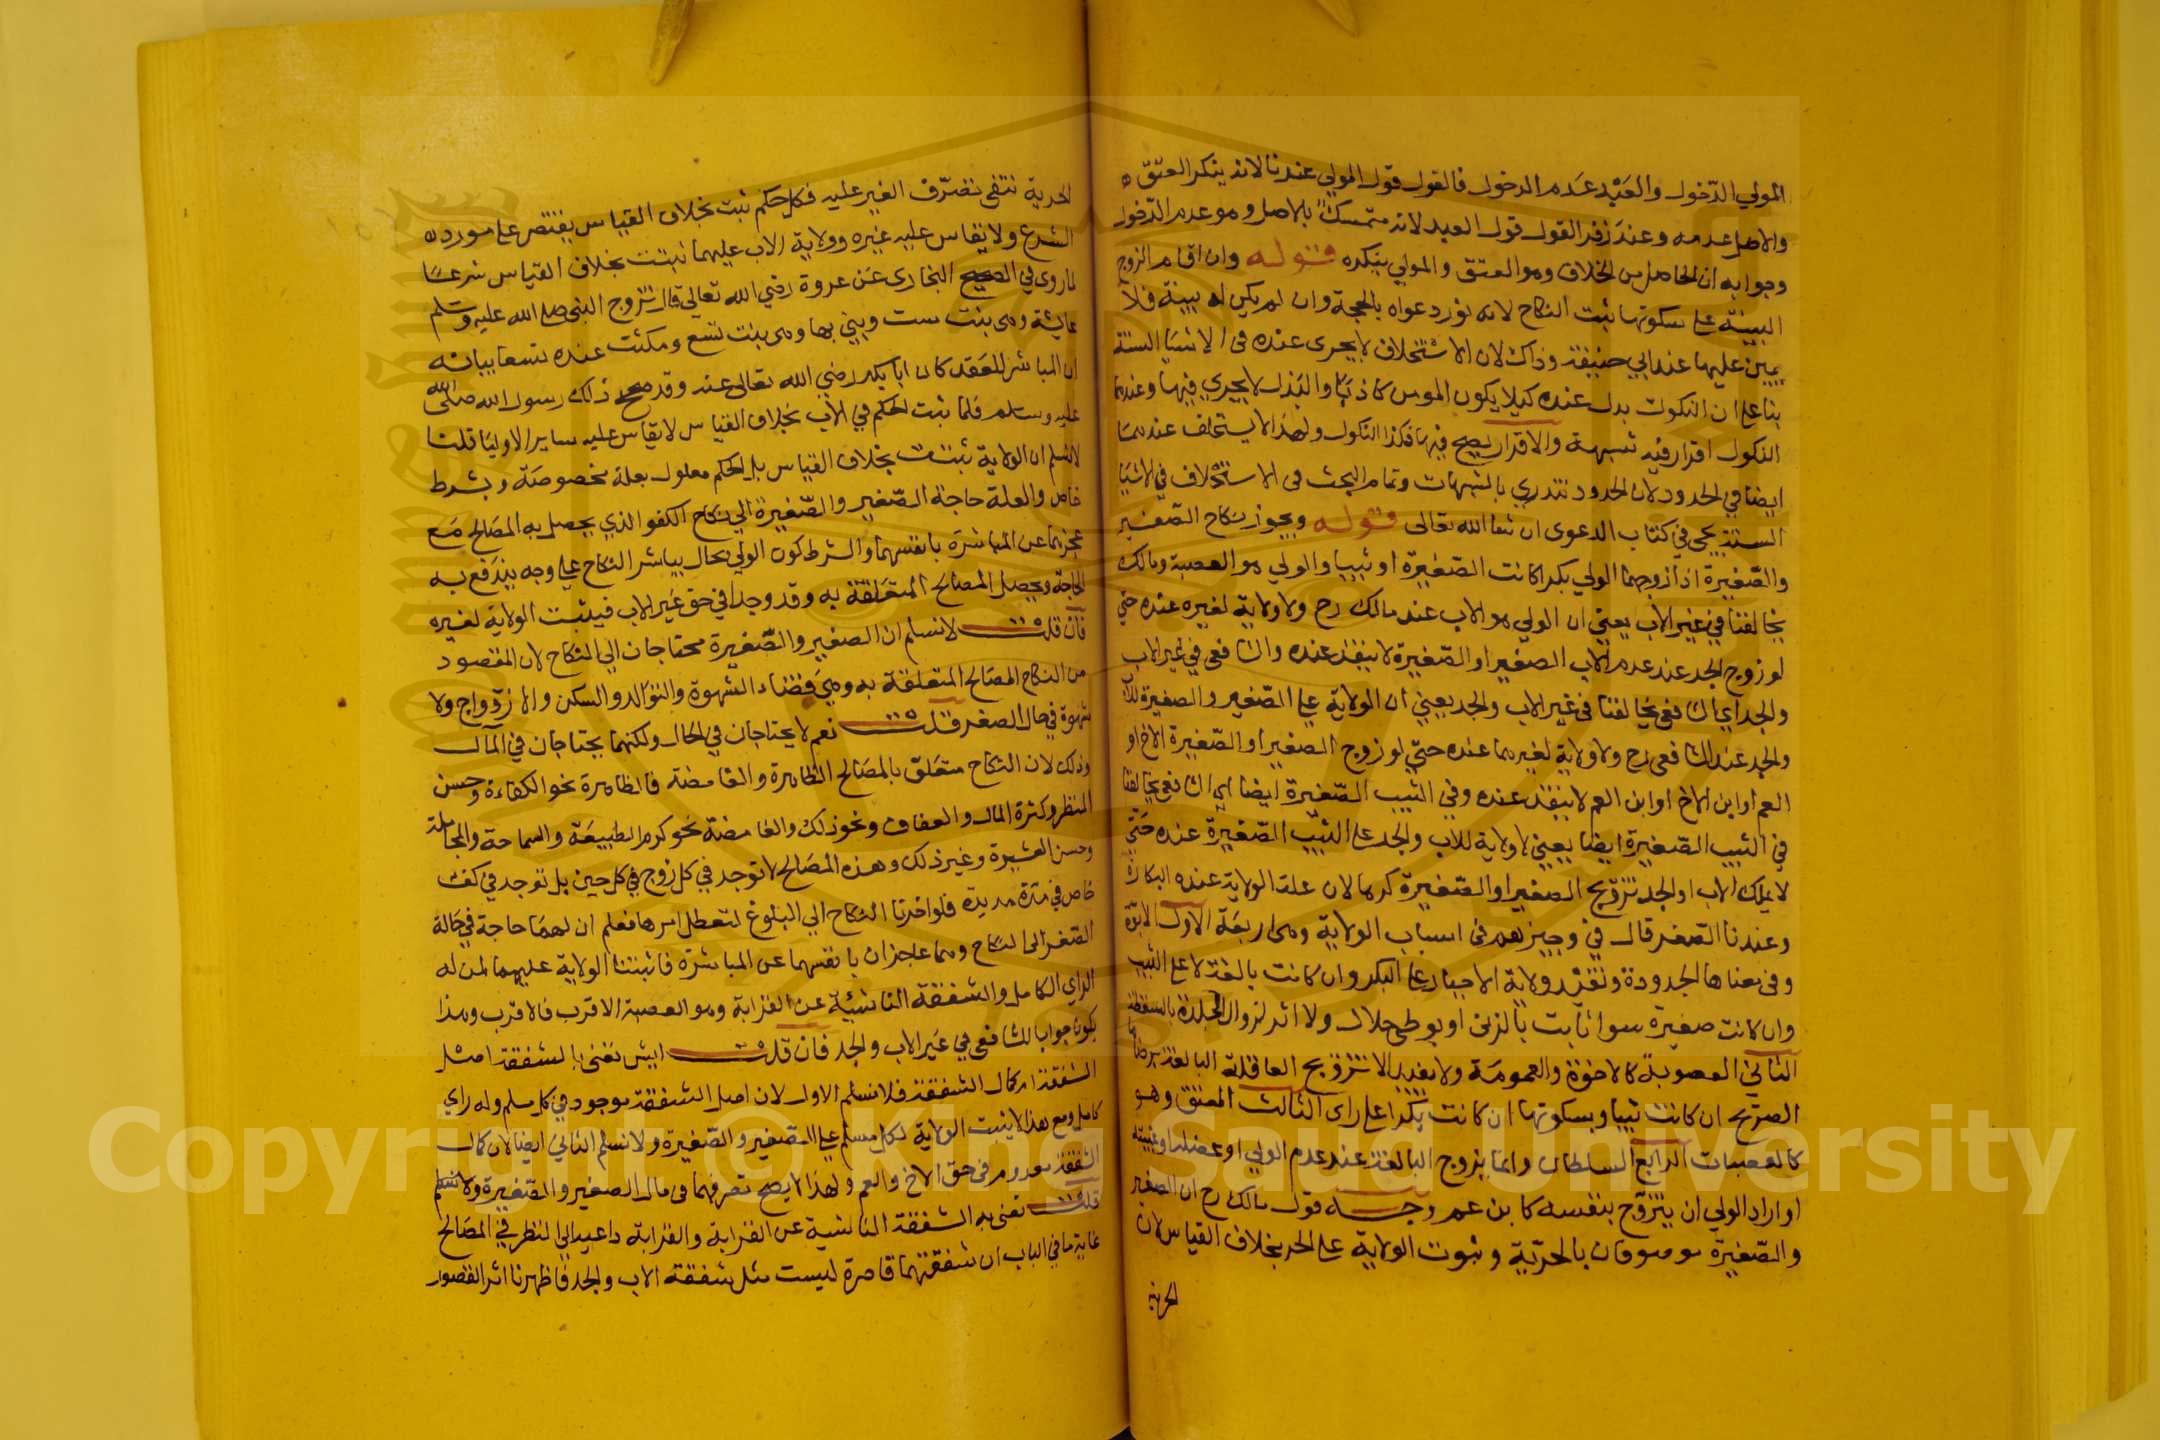 المولي الدخول والعبد عدم الدخول فالقول قول المولي عندنا لانه ينكر العتق
والاصل عدمه وعند زفر القول قول العبد لانه متمسك بالاصل وهو عدم الدخول
وجوابه ان الحاصل من الخلاف وهو العتق والمولي ينكره قوله وان اقام الزوج
البينة على سكوتها ثبت النكاح لانه نور دعواه بالحجة وان لم يكن له بينة فلا
يمين عليها عند ابي حنيفة وذاك لان الاستحلاف لا يجري عنده في الاشيا الستة
بنا على ان النكول بدل عنده كيلا يكون المومن كاذبا والبذل لا يجري فيها وعندهما
النكول اقرار فيه شبهة والاقرار يصح فيها فكذا النكول ولهذا لا يستحلف عندهما
ايضا في الحدود لان الحدود تندري بالشبهات وتمام البحث في الاستحلاف في الاشيا
الستة يجي في كتاب الدعوى ان شا الله تعالى قوله ويجوز نكاح الصغير
والصغيرة اذا زوجهما الولي بكرا كانت الصغيرة او ثيبا والولي هو العصبة ومالك
يخالفنا في غير الاب يعني ان الولي هو الاب عند مالك رح ولا ولاية لغيره عنده حتي
لو زوج الجد عند عدم الاب الصغير او الصغيرة لا ينفذ عنده والشافعي في غير الاب
والجد اي الشافعي يخالفنا في غير الاب والجد يعني ان الولاية على الصغير والصغيرة للاب
والجد عند الشافعي رح ولا ولاية لغيرهما عنده حتي لو زوج الصغير او الصغيرة الاخ او
العم او ابن الاخ او ابن العم لا ينفذ عنده وفي الثيب الصغيرة ايضا اي الشافعي يخالفنا
في الثيب الصغيرة ايضا يعني لا ولاية للاب والجد على الثيب الصغيرة عنده حتي
لا يملك الاب او الجد تزويج الصغير او الصغيرة كرها لان علة الولاية عنده البكارة
وعندنا الصغر قال في وجيزهم في اسباب الولاية وهي اربعة الاول الابوة
وفي معناها الجدودة وتفيد ولاية الاجبار على البكر وان كانت بالغة لا على الثيب
وان كانت صغيرة سوا ثابت بالزنى او بوطي حلال ولا اثر لزوال الجلدة بالسقطة
الثاني العصوبة كالاخوة والعمومة ولا تفيد الا تزويج العاقلة البالغة برضاها
الصريح ان كانت ثيبا وبسكوتها ان كانت بكرا على راي الثالث المعتق وهو
كالعصبات الرابع السلطان وانما يزوج البالغة عند عدم الولي او عضله او غيبته
او اراد الولي ان يتزوج بنفسه كابن عم وجه قول مالك رح ان الصغير
والصغيرة موصوفان بالحرية وثبوت الولاية على الحر بخلاف القياس لان
الحرية
الحرية تنتفي تصرف الغير عليه فكل حكم ثبت بخلاف القياس يقتصر على مورده
الشرع ولا يقاس عليه غيره وولاية الاب عليهما ثبتت بخلاف القياس شرعا
لما روي في الصحيح البخاري عن عروة رضي الله تعالى قال تزوج النبي صلى الله عليه وسلم
عايشة وهي بنت ست وبني بها وهي بنت تسع ومكثت عنده تسعا بيانه
ان المباشر للعقد كان ابا بكر رضي الله تعالى عنه وقد صحح ذلك رسول الله صلى الله
عليه وسلم فلما ثبت الحكم في الاب بخلاف القياس لا يقاس عليه ساير الاوليا قلنا
لا نسلم ان الولاية ثبتت بخلاف القياس بل الحكم معلول بعلة مخصوصة وبشرط
خاص والعلة حاجة الصغير والصغيرة الي نكاح الكفو الذي يحصل به المصالح مع
عجزهما عن المباشرة بانفسهما والشرط كون الولي بحال يباشر النكاح على وجه يندفع به
الحاجة ويحصل المصالح المتعلقة به وقد وجدا في حق غير الاب فيثبت الولاية لغيره
فان قلت لا نسلم ان الصغير والصغيرة محتاجان الي النكاح لان المقصود
من النكاح المصالح المتعلقة به وهي قضاء الشهوة والتوالد والسكن والازدواج ولا
شهوة في حال الصغر قلت نعم لا يحتاجان في الحال ولكنهما يحتاجان في المال
وذلك لان النكاح متعلق بالمصالح الظاهرة والغامضة فالظاهرة نحو الكفاءة وحسن
المنظر وكثرة المال والعفاف ونحو ذلك والغامضة نحو كرم الطبيعة والسماحة والمجاملة
وحسن العشيرة وغير ذلك وهذه المصالح لا توجد في كل زوج في كل حين بل توجد في كفو
خاص في مدة مديدة فلو اخرنا النكاح الي البلوغ لتعطل امرها فعلم ان لهما حاجة في حالة
الصغر الى النكاح وهما عاجزان بانفسهما عن المباشرة فاثبتنا الولاية عليهما لمن له
الراي الكامل والشفقة الناشئة عن القرابة وهو العصبة الاقرب فالاقرب وهذا
يكون جوابا للشافعي في غير الاب والجد فان قلت ايش تعني بالشفقة اصل
الشفقة ام كمال الشفقة فلا نسلم الاول لان اصل الشفقة موجود في كل مسلم وله راي
كامل ومع هذا لا يثبت الولاية لكل مسلم على الصغير والصغيرة ولا نسلم الثاني ايضا لان كمال
الشفقة معدوم في حق الاخ والعم ولهذا لا يصح تصرفهما في مال الصغير والصغيرة ولا نسلم
قلت نعني به الشفقة الناشية عن القرابة والقرابة داعية الي النظر في المصالح
غاية ما في الباب ان شفقتهما قاصرة ليست مثل شفقة الاب والجد فاظهرنا اثر القصور
Copyright © King Saud University